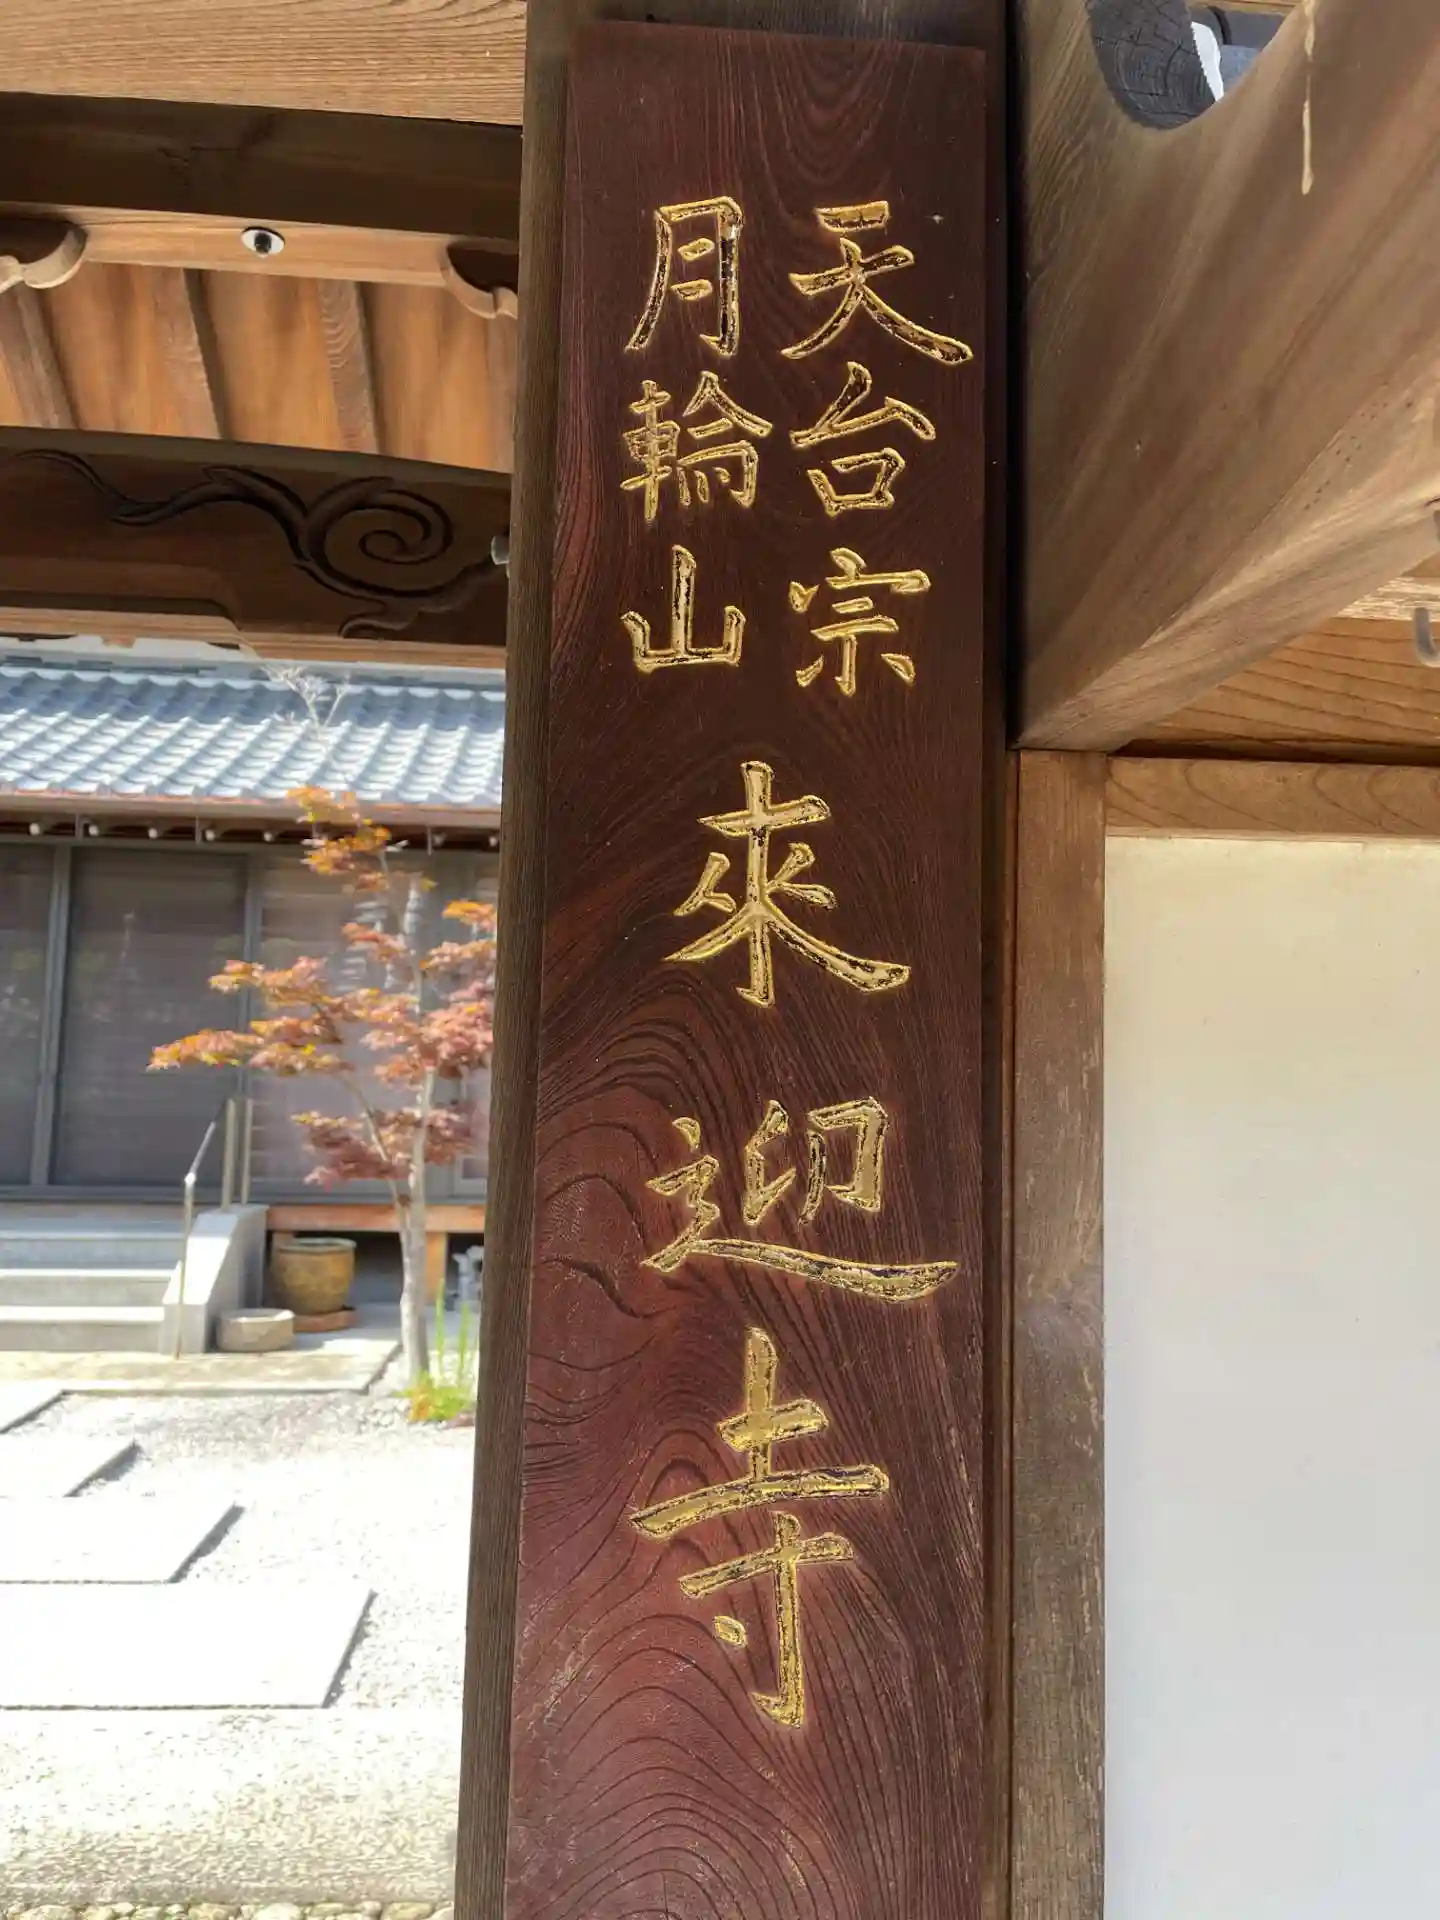 天台宗
月輪山
來迎寺